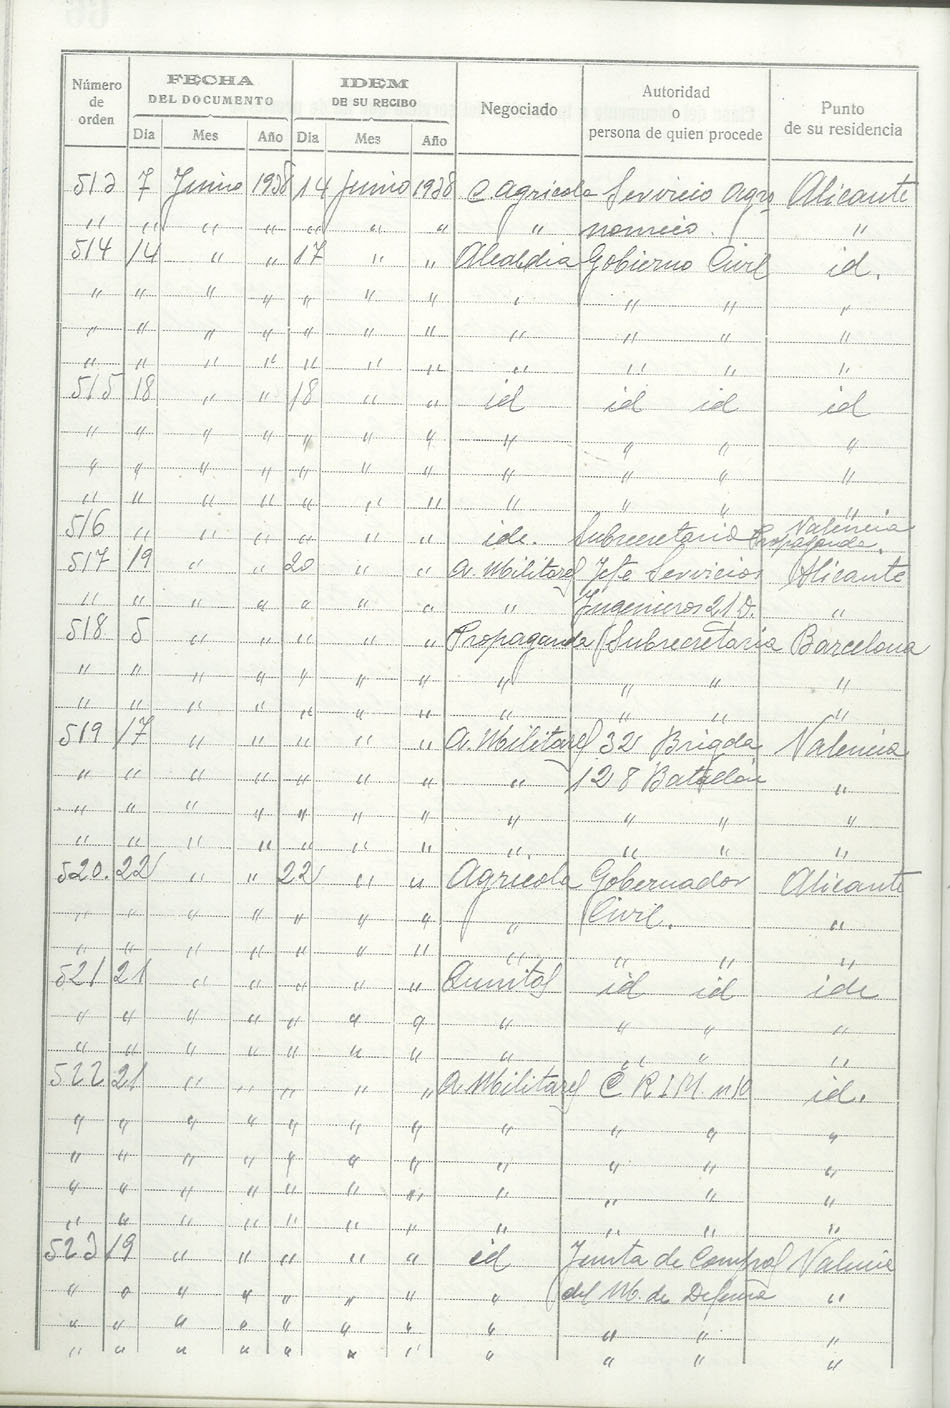 Número de orden | FECHA DEL DOCUMENTO Dia Mes Año | IDEM DE SU RECIBO Dia Mes Año | Negociado | Autoridad o persona de quien procede | Punto de su residencia
513 7 Junio 1938 14 Junio 1938 C. Agricola Servicio Agro Alicante
" " " " " " " " nomico. "
514 14 " " 17 " " Alcaldia Gobierno Civil id.
" " " " " " " " " " "
" " " " " " " " " " "
" " " " " " " " " " "
515 18 " " 18 " " id id id id
" " " " " " " " " " "
" " " " " " " " " " "
" " " " " " " " " " "
516 " " " " " " ide. Subsecretaria Propaganda Valencia
517 19 " " 20 " " A. Militares Jefe Servicios Alicante
" " " " " " " " Ingenieros 21 D. "
518 5 " " " " " Propaganda Subsecretaria Barcelona
" " " " " " " " " " "
" " " " " " " " " " "
519 17 " " " " " A. Militares 32 Brigda Valencia
" " " " " " " " 128 Batallon "
" " " " " " " " " " "
" " " " " " " " " " "
520. 22 " " 22 " " Agricola Gobernador Alicante
" " " " " " " " Civil. "
" " " " " " " " " " "
521 21 " " " " " id id ide
" " " " " " " " " " "
" " " " " " " " " " "
522 21 " " " " " A. Militares C R I M. nº 10 id.
" " " " " " " " " " "
" " " " " " " " " " "
" " " " " " " " " " "
" " " " " " " " " " "
523 19 " " " " " id Junta de Control Valencia
" " " " " " " " del M. de Defensa "
" " " " " " " " " " "
" " " " " " " " " " "